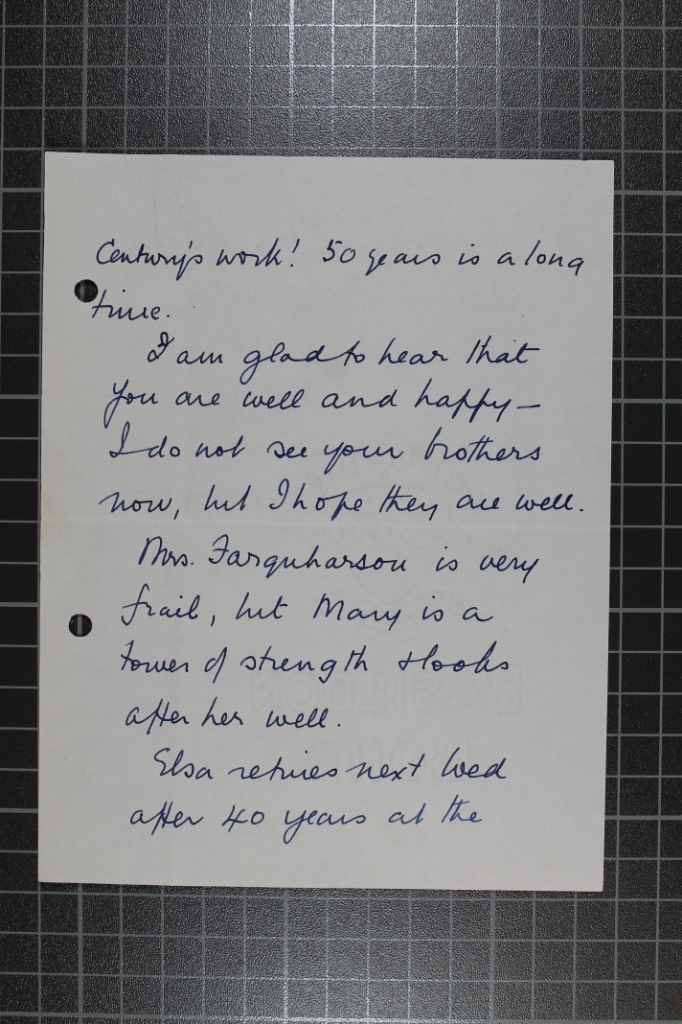 Century's work! 50 years is a long
time.
I am glad to hear that
you are well and happy –
I do not see your brothers
now, but I hope they are well.
Mrs. Farquharson is very
frail, but Mary is a
tower of strength & looks
after her well.
Elsa retires next Wed
after 40 years at the
BASILDON
BOND